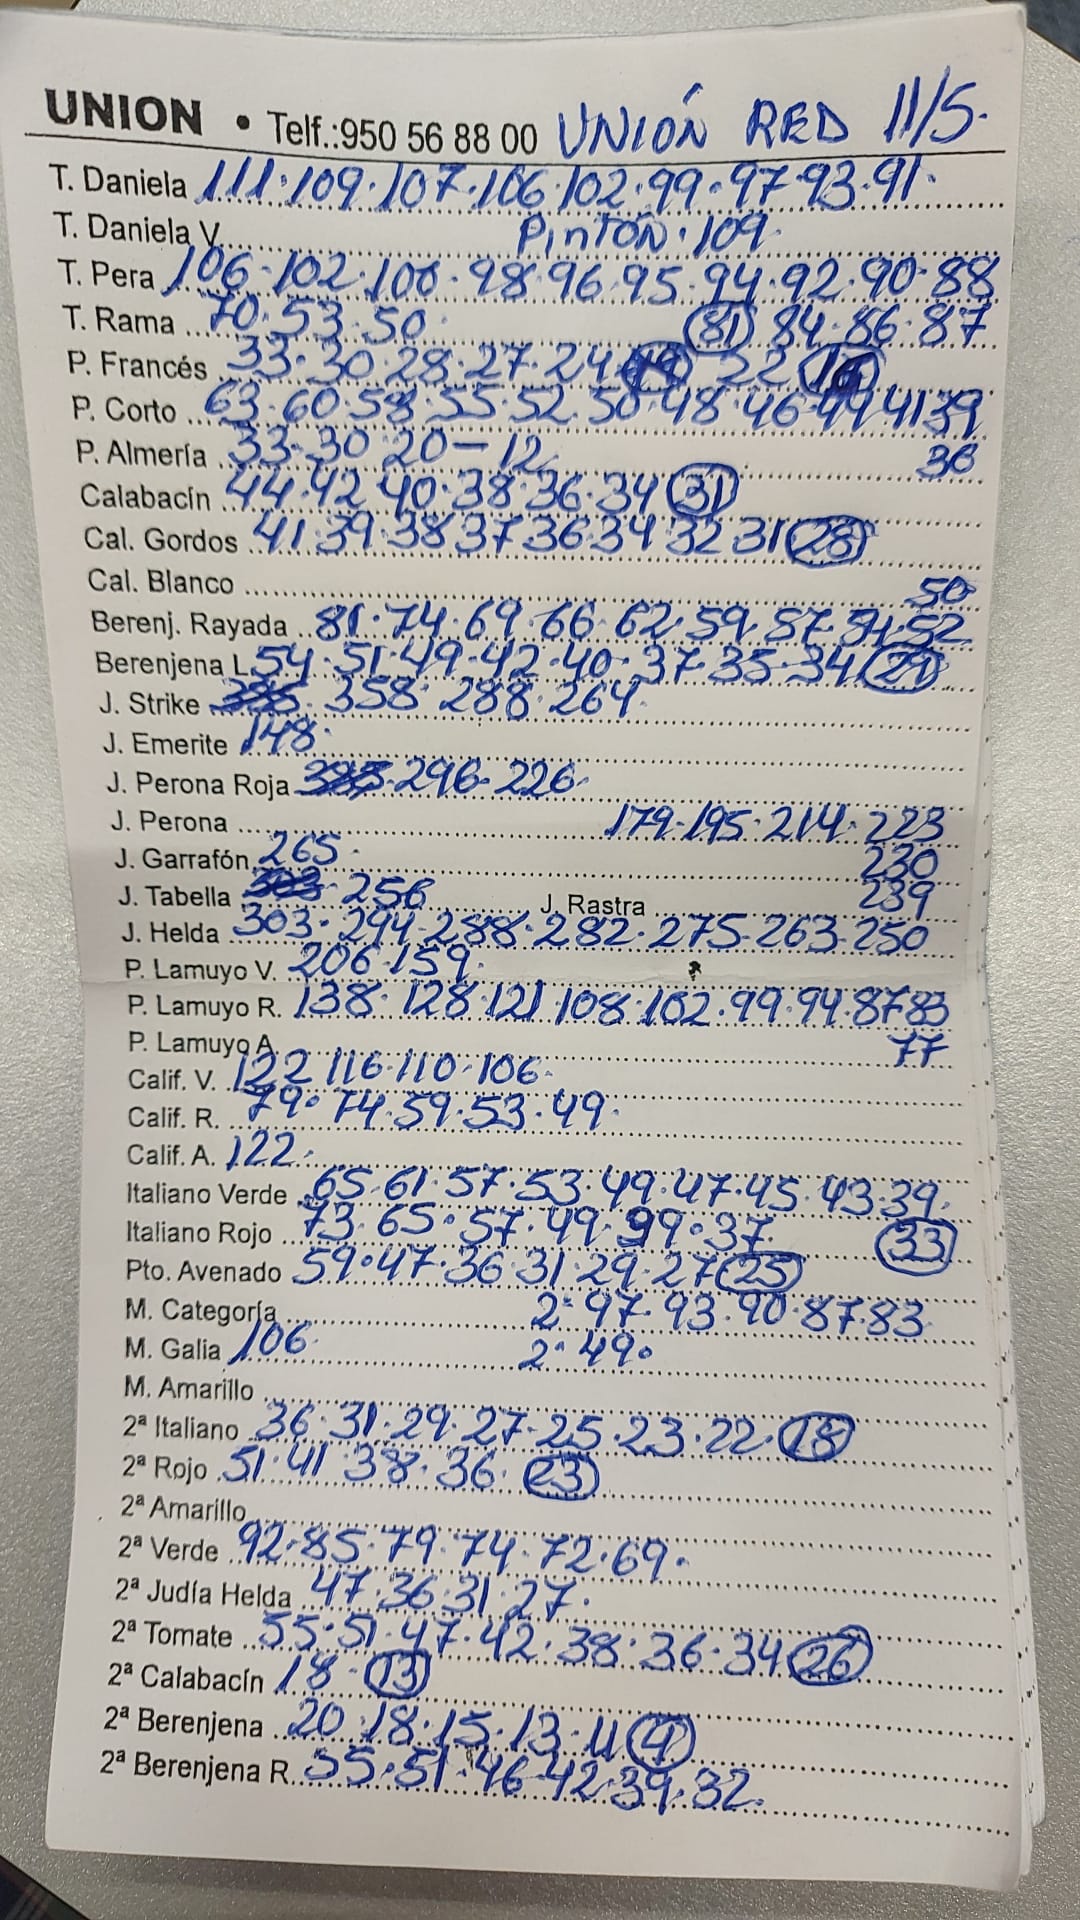 UNION • Telf.:950 56 88 00 UNIÓN RED 11/5.
T. Daniela 111·109·107·106·102·99·97·93·91·
T. Daniela V. PINTÓN·109
T. Pera 106·102·100·98·96·95·94·92·90·88
T. Rama 70·53·50· (81) 84·86·87
P. Francés 33·30·28·27·24 22
P. Corto 63·60·58·55·52·50·48·46·44·41·39
P. Almería 33·30·20—12 36
Calabacín 44·42·40·38·36·34 (31)
Cal. Gordos 41·39·38·37·36·34·32·31 (28)
Cal. Blanco 50
Berenj. Rayada 81·74·69·66·62·59·57·54·52
Berenjena L 54·51·49·42·40·37·35·34
J. Strike 358·288·264·
J. Emerite 148·
J. Perona Roja 296·226·
J. Perona 179·195·214·223
J. Garrafón 265· 230
J. Tabella 256 J. Rastra 239
J. Helda 303·294·288·282·275·263·250
P. Lamuyo V. 206·159·
P. Lamuyo R. 138·128·121·108·102·99·94·87·83
P. Lamuyo A. 77
Calif. V. 122·116·110·106·
Calif. R. 79·74·59·53·49·
Calif. A. 122·
Italiano Verde 65·61·57·53·49·47·45·43·39·
Italiano Rojo 73·65·57·49· 37 (33)
Pto. Avenado 59·47·36·31·29·27 (25)
M. Categoría 2ª 97·93·90·87·83
M. Galia 106· 2ª 49·
M. Amarillo
2ª Italiano 36·31·29·27·25·23·22·(18)
2ª Rojo 51·41·38·36·(23)
2ª Amarillo
2ª Verde 92·85·79·74·72·69·
2ª Judía Helda 47·36·31·27·
2ª Tomate 55·51·47·42·38·36·34 (26)
2ª Calabacín 18·(13)
2ª Berenjena 20·18·15·13·11
2ª Berenjena R. 55·51·46·42·39·32·